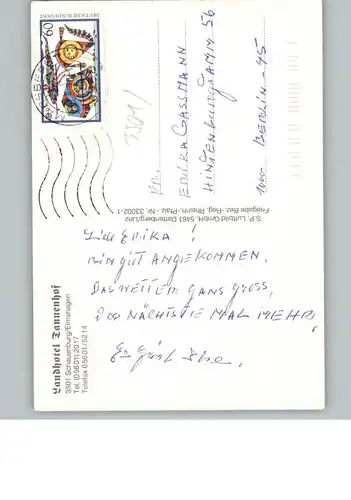 Landhotel Tannenhof
3501 Schauenburg/Elmshagen
Tel. (0 56 01) 20 17
Telefax 0 56 01 / 52 14
Liebe Erika!
Bin gut ANGEKOMMEN.
DAS WETTER GANS GROSS,
DAS NÄCHSTE MAL MEHR,
S.P. Luftbild GmbH, 5461 Dattenberg/Linz
Freigabe Bez.-Reg. Rheinh.-Pfalz - Nr. 33002-1
3501/
DEUTSCHE BUNDESPOST
60
ERIKA GASSMANN
HINDENBURGDAMM 56
1000 BERLIN 45